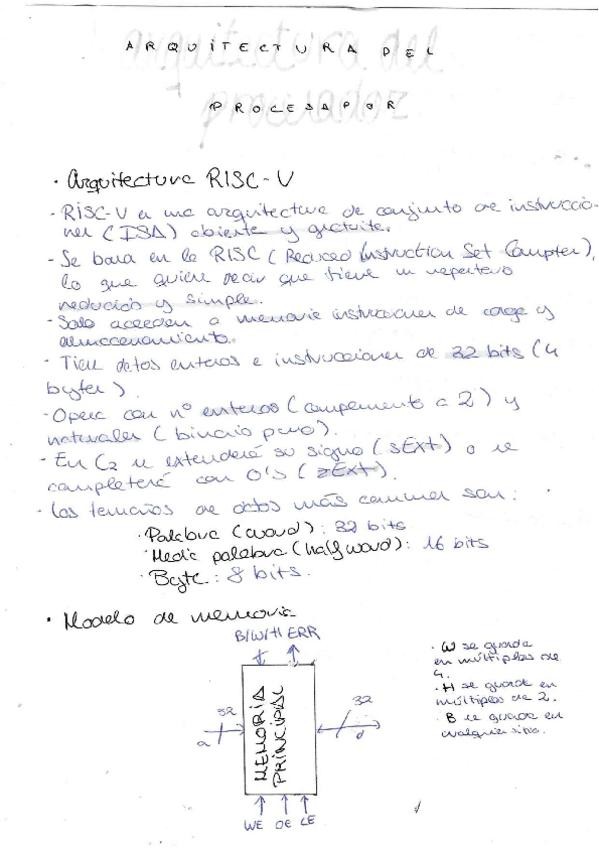 ARQUITECTURA DEL
PROCESADOR
· Arquitectura RISC-V
- RISC-V es una arquitectura de conjunto de instruccio-
nes (ISA) abierta y gratuita.
- Se basa en la RISC (Reduced Instruction Set Computer),
lo que quiere decir que tiene un repertorio
reducido y simple.
- Solo acceden a memoria instrucciones de carga y
almacenamiento.
- Tiene datos enteros e instrucciones de 32 bits (4
bytes).
- Opera con nº enteros (complemento a 2) y
naturales (binario puro).
- En C2 se extenderá su signo (sExt) o se
completerá con 0's (zExt).
- Los tamaños de datos más comunes son:
· Palabra (word): 32 bits
· Media palabra (half word): 16 bits
· Byte: 8 bits.
· Modelo de memoria
B/W/H ERR
32
a
MEMORIA
PRINCIPAL
32
d
WE OE LE
· W se guarda
en múltiplos de
4.
· H se guarda en
múltiplos de 2.
· B se guarda en
cualquier sitio.